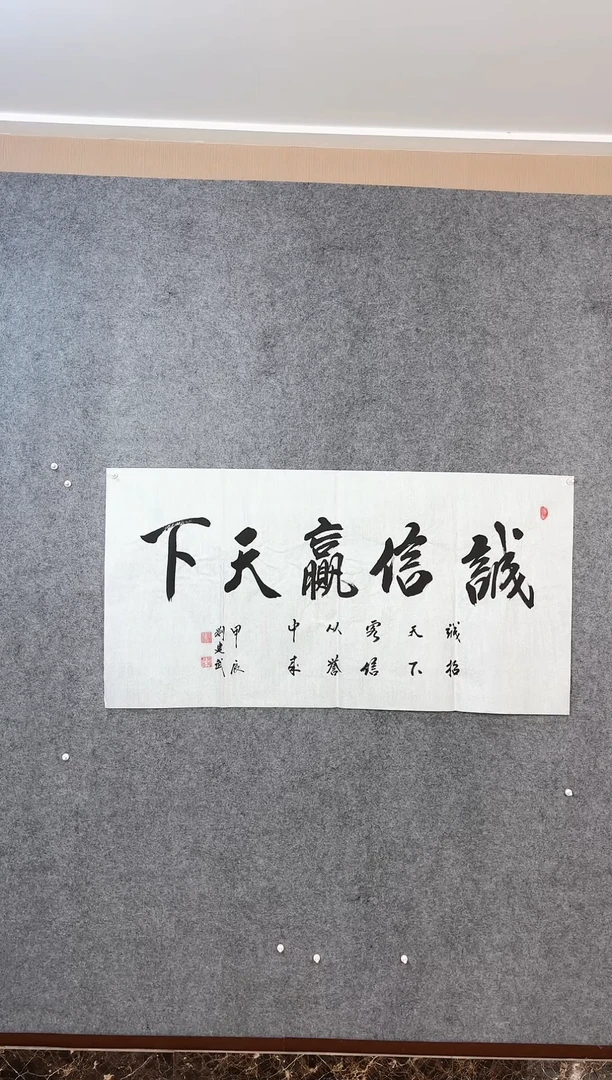 誠信贏天下
誠招
天下
客信
从譽
中來
甲辰
劉建武